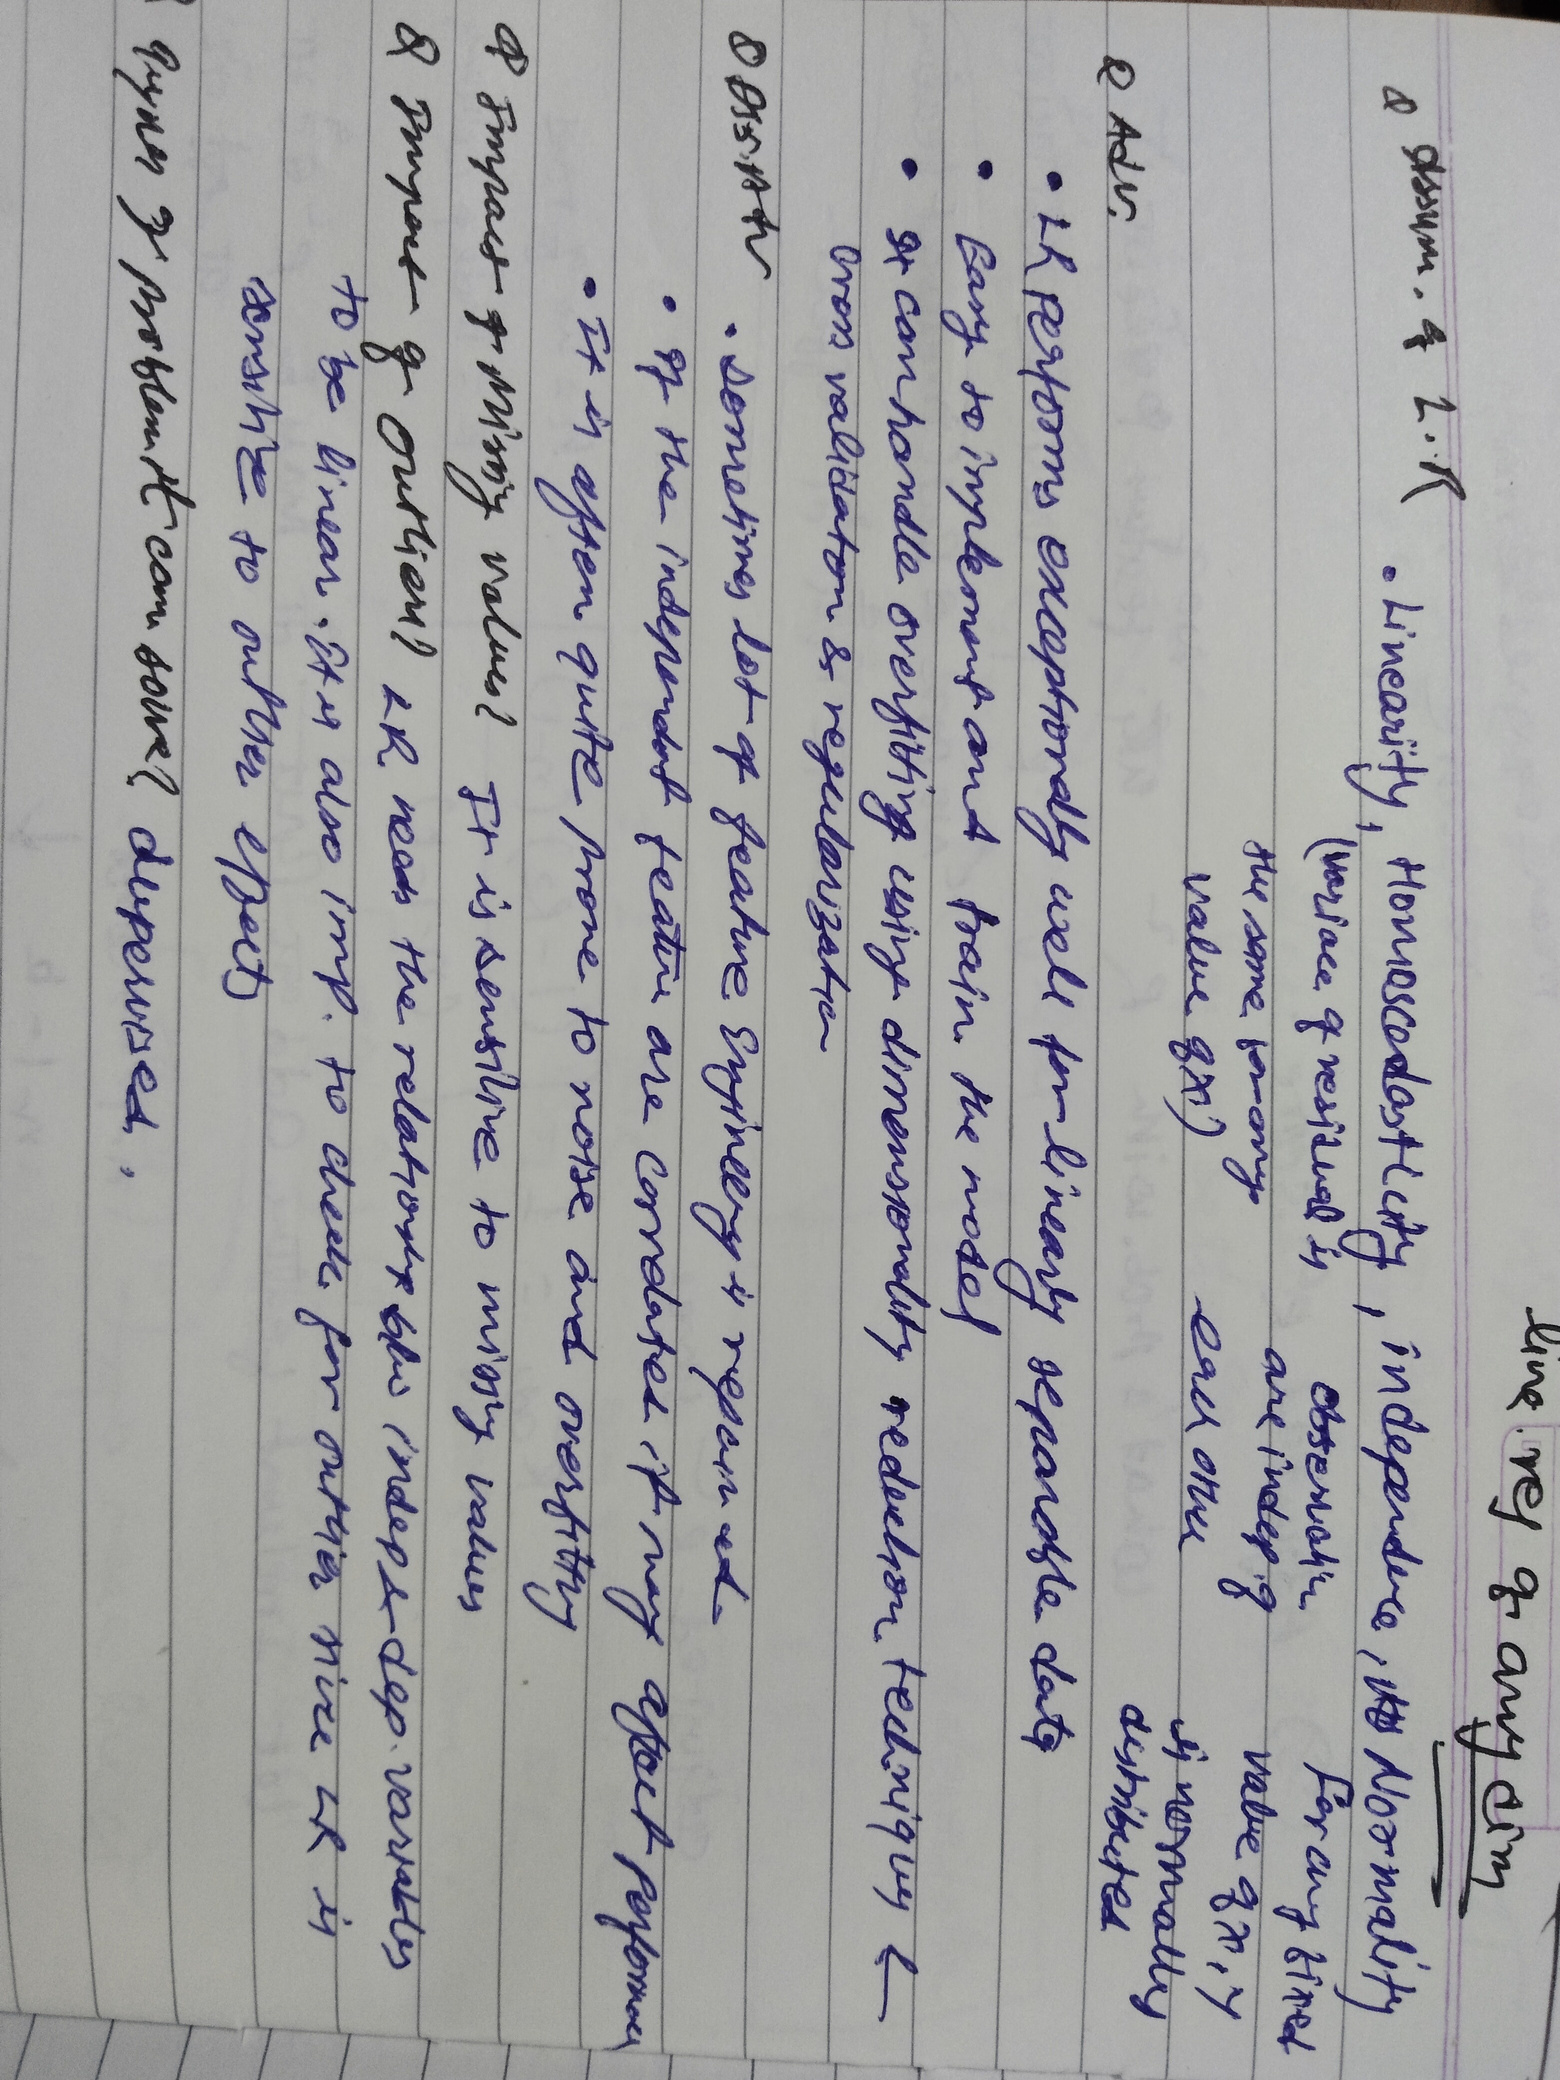 line. reg of any dim
Q Assum. of L.R • Linearity, Homoscedasticity, independence, Normality
(variace of residual is observation for any fixed
the same for any are indep. of value of x, y
value of x) each other is normally
distributed
Q Adv.
• LR performs exceptionally well for linearly separable data
• Easy to implement and train the model
• It can handle overfitting using dimensionality reduction techniques &
cross validation & regularization
Q DisAdv • Sometimes lot of feature Engineering is required
• If the independent feature are correlated it may affect performance
• It is often quite prone to noise and overfitting
Q Impact of Missing values? It is sensitive to missing values
Q Impact of outliers? LR needs the relationship b/w indep & dep. variables
to be linear. It is also imp. to check for outlier since LR is
sensitive to outlier effects
Types of problems it can solve? Supervised.